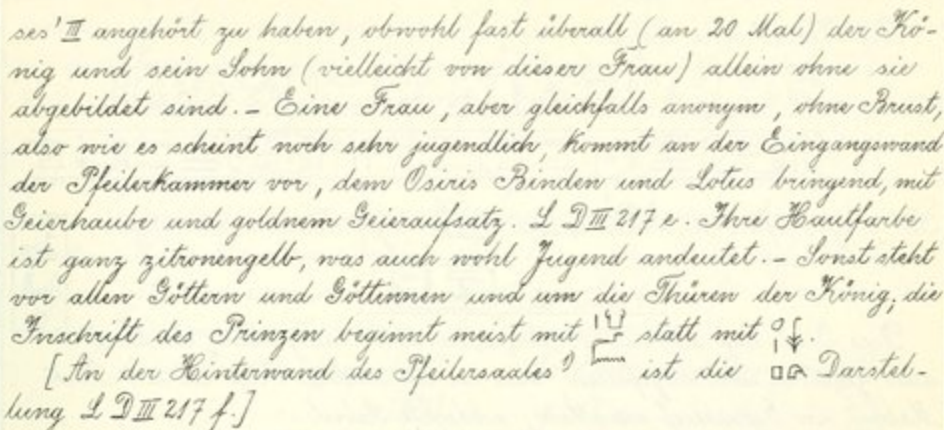 ses' III angehört zu haben, obwohl fast überall (an 20 Mal) der Kö-
nig und sein Sohn (vielleicht von dieser Frau) allein ohne sie
abgebildet sind. – Eine Frau, aber gleichfalls anonym, ohne Brust,
also wie es scheint noch sehr jugendlich, kommt an der Eingangswand
der Pfeilerkammer vor, dem Osiris Binden und Lotus bringend, mit
Geierhaube und goldnem Geieraufsatz. L D III 217 e. Ihre Hautfarbe
ist ganz zitronengelb, was auch wohl Jugend andeutet. – Sonst steht
vor allen Göttern und Göttinnen und um die Thüren der König; die
Inschrift des Prinzen beginnt meist mit statt mit .
[An der Hinterwand des Pfeilersaales 1) ist die Darstel-
lung L D III 217 f.]